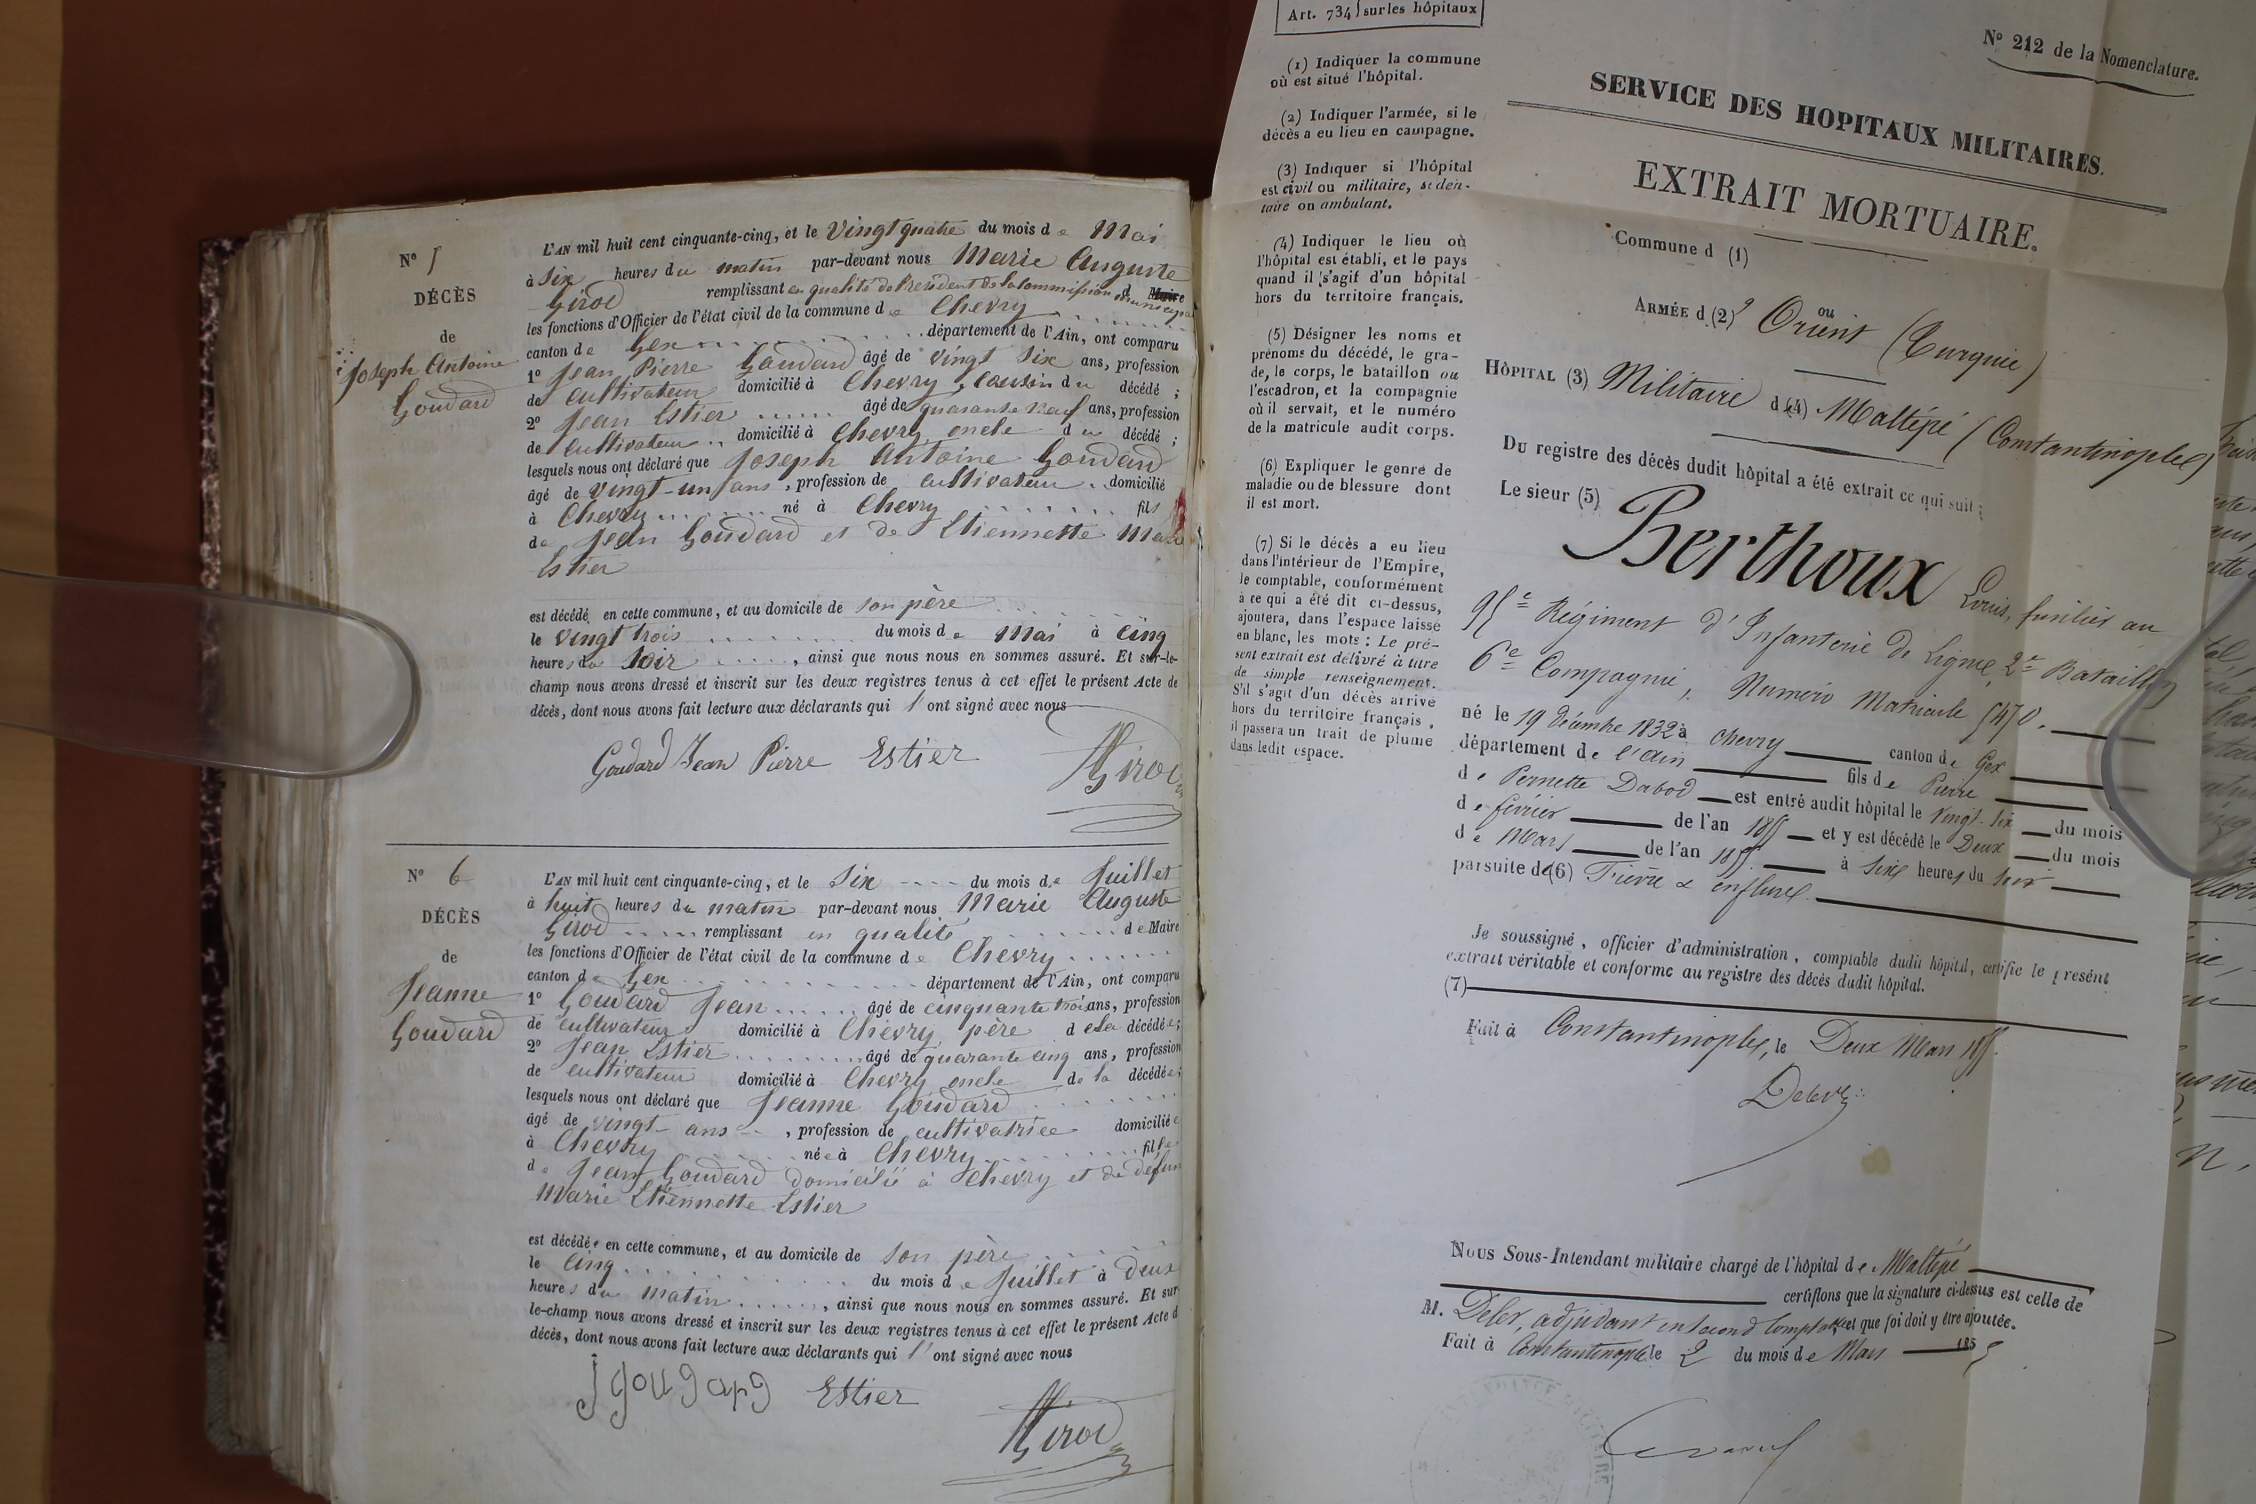 N° 5
DÉCÈS
de
Joseph Antoine
Goudard
L'AN mil huit cent cinquante-cinq, et le vingt quatre du mois de Mai
à six heures du matin par-devant nous Marie Auguste
Girod remplissant en qualité de Président de la commission municipale d Maire
les fonctions d'Officier de l'état civil de la commune de Chevry
canton de Gex département de l'Ain, ont comparu
1° Jean Pierre Goudard âgé de vingt six ans, profession
de cultivateur domicilié à Chevry, cousin du décédé ;
2° Jean Estier âgé de quarante neuf ans, profession
de cultivateur domicilié à Chevry, oncle du décédé ;
lesquels nous ont déclaré que Joseph Antoine Goudard
âgé de vingt-un ans, profession de cultivateur domicilié
à Chevry né à Chevry fils
de Jean Goudard et de Etiennette Marie
Estier
est décédé en cette commune, et au domicile de son père
le vingt trois du mois de Mai à cinq
heures du soir, ainsi que nous nous en sommes assuré. Et sur-le-
champ nous avons dressé et inscrit sur les deux registres tenus à cet effet le présent Acte de
décès, dont nous avons fait lecture aux déclarants qui l'ont signé avec nous
Goudard Jean Pierre Estier Girod
N° 6
DÉCÈS
de
Jeanne
Goudard
L'AN mil huit cent cinquante-cinq, et le six du mois de Juillet
à huit heures du matin par-devant nous Marie Auguste
Girod remplissant en qualité de Maire
les fonctions d'Officier de l'état civil de la commune de Chevry
canton de Gex département de l'Ain, ont comparu
1° Goudard Jean âgé de cinquante trois ans, profession
de cultivateur domicilié à Chevry, père de la décédée ;
2° Jean Estier âgé de quarante cinq ans, profession
de cultivateur domicilié à Chevry, oncle de la décédée ;
lesquels nous ont déclaré que Jeanne Goudard
âgé de vingt ans, profession de cultivatrice domiciliée
à Chevry née à Chevry fille
de Jean Goudard domicilié à Chevry et de défun
Marie Etiennette Estier
est décédée en cette commune, et au domicile de son père
le cinq du mois de Juillet à deux
heures du matin, ainsi que nous nous en sommes assuré. Et sur
le-champ nous avons dressé et inscrit sur les deux registres tenus à cet effet le présent Acte d
décès, dont nous avons fait lecture aux déclarants qui l'ont signé avec nous
J goudard Estier Girod
Art. 734 sur les hôpitaux
(1) Indiquer la commune
où est situé l'hôpital.
(2) Indiquer l'armée, si le
décès a eu lieu en campagne.
(3) Indiquer si l'hôpital
est civil ou militaire, séden-
taire ou ambulant.
(4) Indiquer le lieu où
l'hôpital est établi, et le pays
quand il s'agit d'un hôpital
hors du territoire français.
(5) Désigner les noms et
prénoms du décédé, le gra-
de, le corps, le bataillon ou
l'escadron, et la compagnie
où il servait, et le numéro
de la matricule audit corps.
(6) Expliquer le genre de
maladie ou de blessure dont
il est mort.
(7) Si le décès a eu lieu
dans l'intérieur de l'Empire,
le comptable, conformément
à ce qui a été dit ci-dessus,
ajoutera, dans l'espace laissé
en blanc, les mots : Le pré-
sent extrait est délivré à titre
de simple renseignement.
S'il s'agit d'un décès arrivé
hors du territoire français,
il passera un trait de plume
dans ledit espace.
N° 212 de la Nomenclature.
SERVICE DES HOPITAUX MILITAIRES.
EXTRAIT MORTUAIRE.
Commune d (1)
ou
ARMÉE d (2) Orient (Turquie)
HÔPITAL (3) Militaire de (4) Maltépé (Constantinople)
Du registre des décès dudit hôpital a été extrait ce qui suit :
Le sieur (5)
Berthoux Louis, fusilier au
95e Régiment d'Infanterie de Ligne, 2e Bataillon
6e Compagnie, Numéro Matricule 5470.
né le 19 décembre 1832 à Chevry canton de Gex
département de l'Ain fils de Pierre
de Pernette Dabod est entré audit hôpital le vingt-six du mois
de février de l'an 1855 et y est décédé le Deux du mois
de Mars de l'an 1855 à six heures du soir
par suite de (6) Fièvre & enflure.
Je soussigné, officier d'administration, comptable dudit hôpital, certifie le présent
extrait véritable et conforme au registre des décès dudit hôpital.
(7)
Fait à Constantinople, le Deux Mars 1855.
Nous Sous-Intendant militaire chargé de l'hôpital de Maltépé
certifions que la signature ci-dessus est celle de
M. Deler, adjudant en second Comptable et que foi doit y être ajoutée.
Fait à Constantinople le 2 du mois de Mars 1855